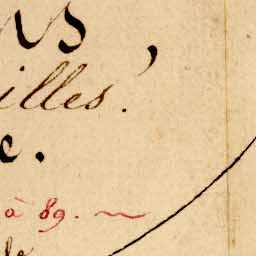 ns,
illes.
e.
à 89. ~
de